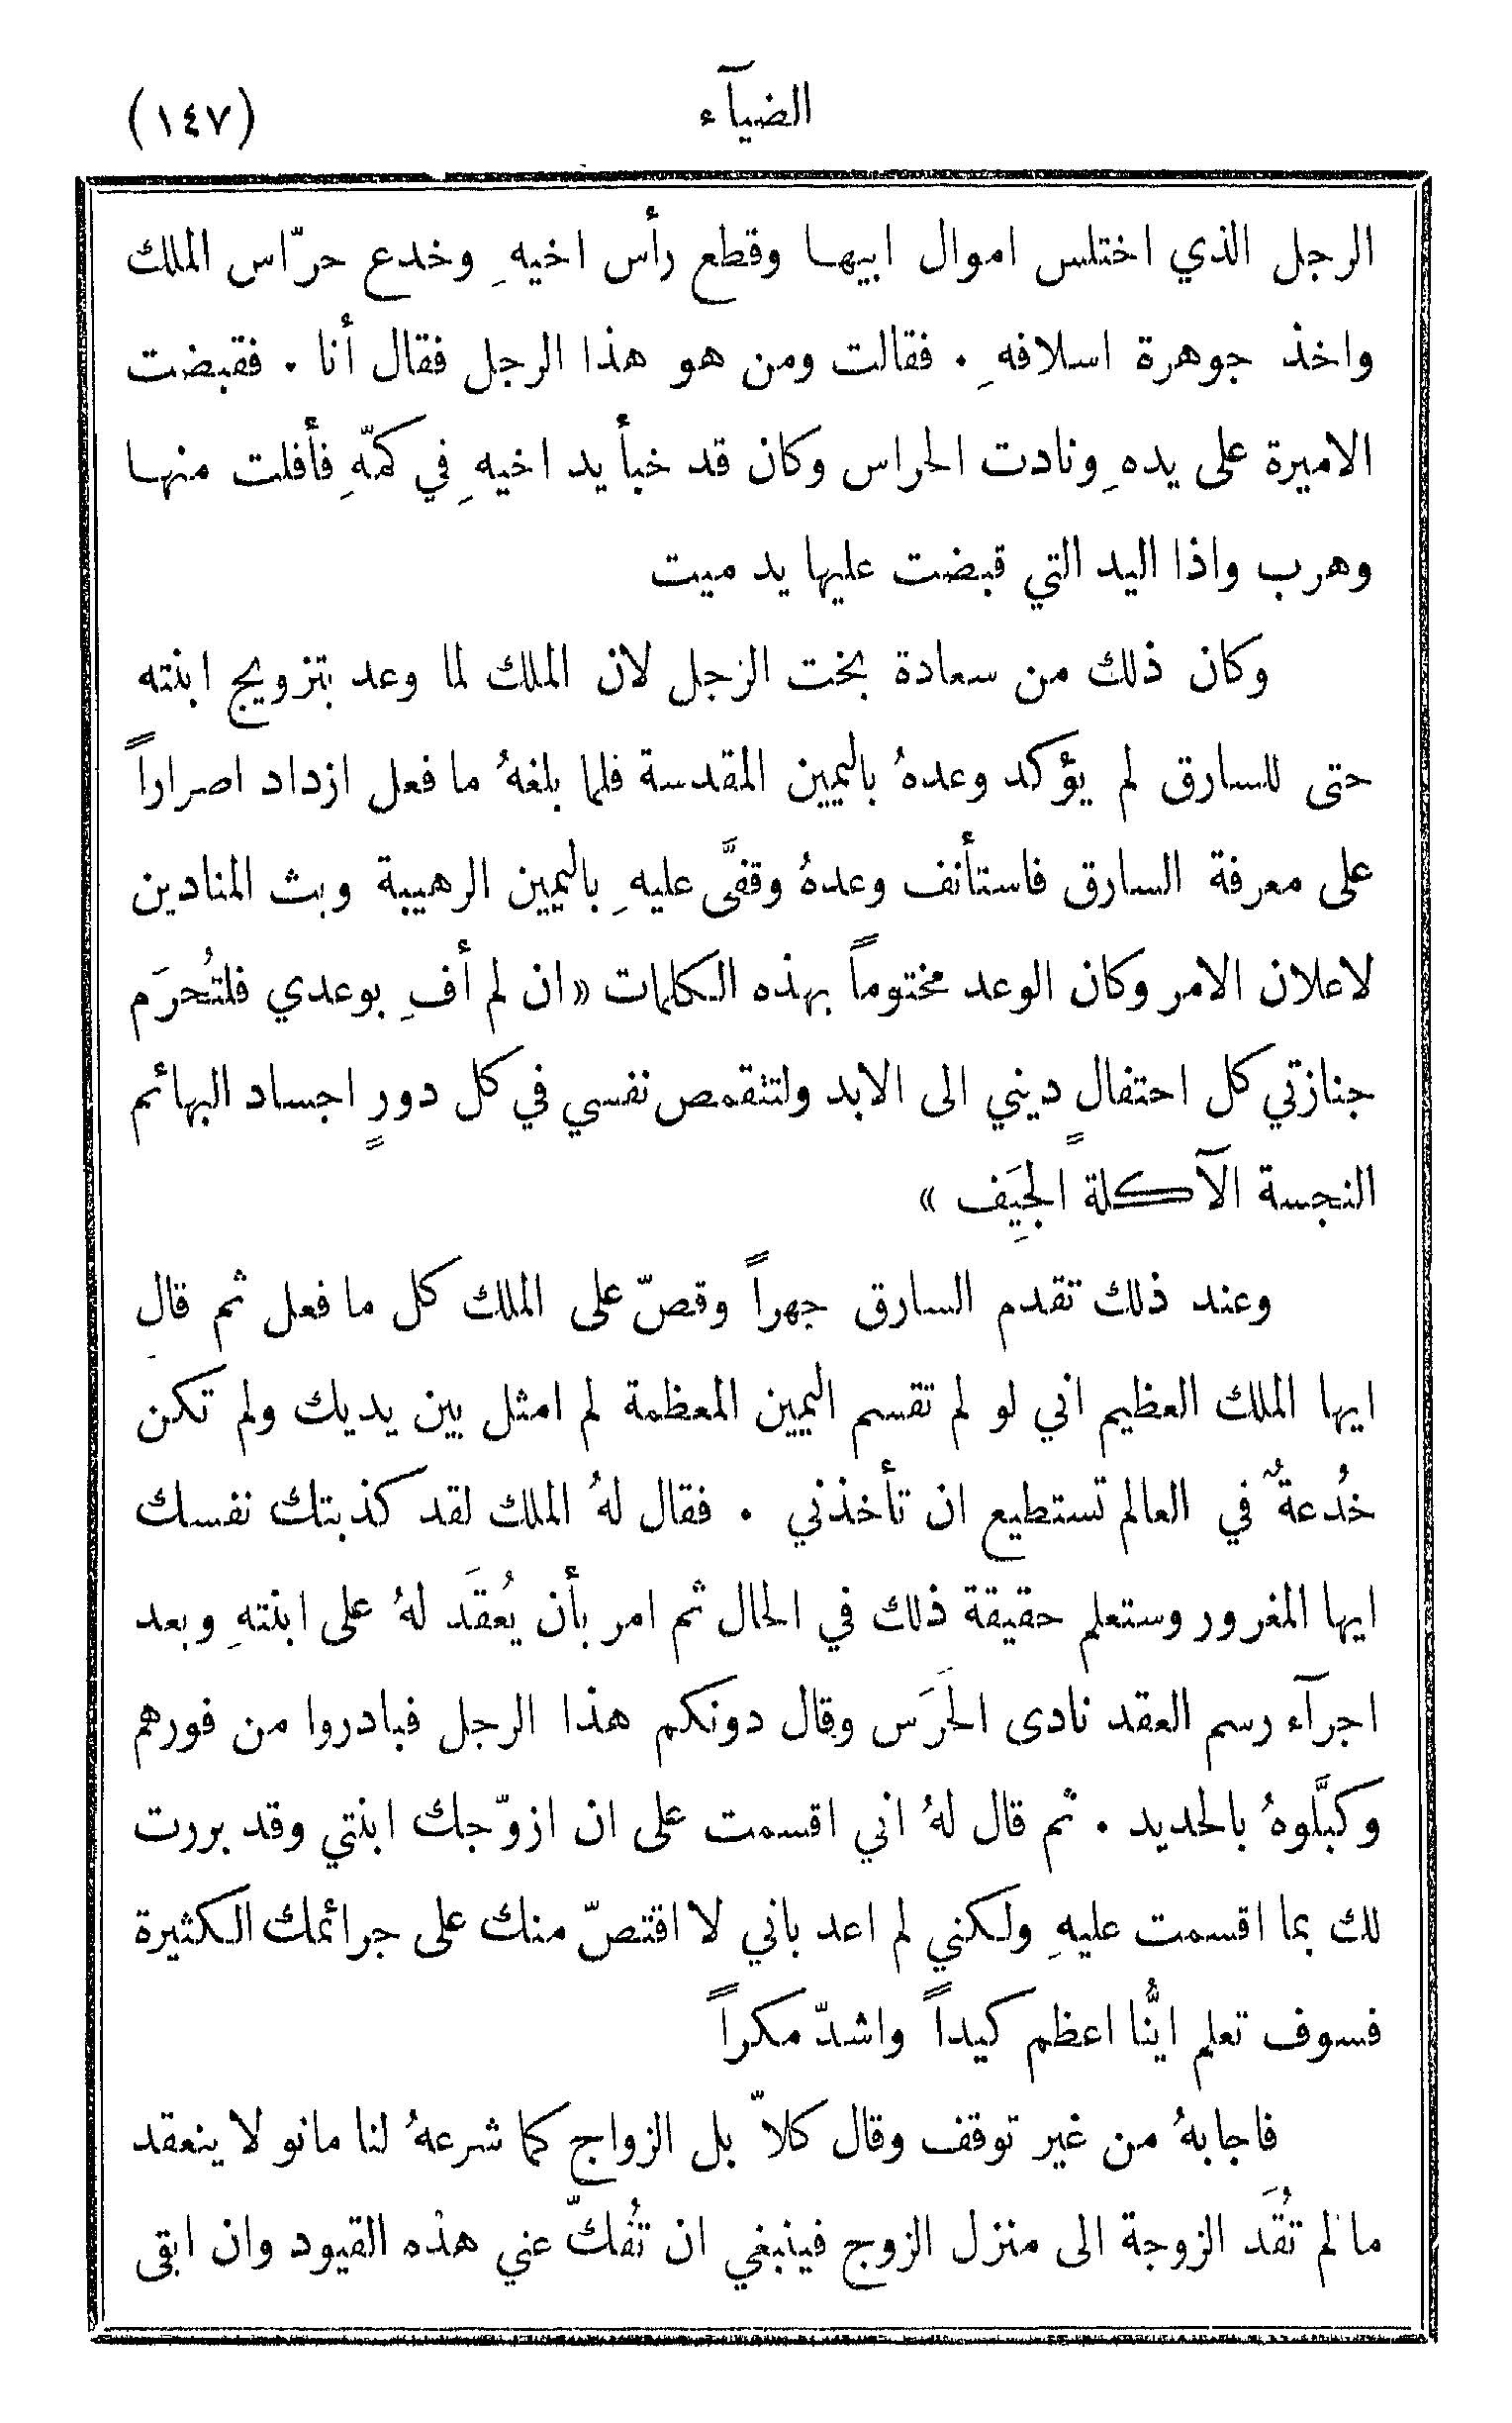 الضيآء
(١٤٧)
الرجل الذي اختلس اموال ابيها وقطع رأس اخيهِ وخدع حرّاس الملك
واخذ جوهرة اسلافهِ . فقالت ومن هو هذا الرجل فقال أنا . فقبضت
الاميرة على يدهِ ونادت الحراس وكان قد خبأ يد اخيهِ في كمّهِ فأفلت منها
وهرب واذا اليد التي قبضت عليها يد ميت
وكان ذلك من سعادة بخت الرجل لان الملك لما وعد بتزويج ابنته
حتى للسارق لم يؤكد وعدهُ باليمين المقدسة فلما بلغهُ ما فعل ازداد اصراراً
على معرفة السارق فاستأنف وعدهُ وقفَّى عليهِ باليمين الرهيبة وبث المنادين
لاعلان الامر وكان الوعد مختوماً بهذه الكلمات «ان لم أفِ بوعدي فلتُحرَم
جنازتي كل احتفالٍ ديني الى الابد ولتتقمص نفسي في كل دورٍ اجساد البهائم
النجسة الآكلة الجِيَف »
وعند ذلك تقدم السارق جهراً وقصّ على الملك كل ما فعل ثم قال
ايها الملك العظيم اني لو لم تقسم اليمين المعظمة لم امثل بين يديك ولم تكن
خُدعةٌ في العالم تستطيع ان تأخذني . فقال لهُ الملك لقد كذبتك نفسك
ايها المغرور وستعلم حقيقة ذلك في الحال ثم امر بأن يُعقَد لهُ على ابنتهِ وبعد
اجرآء رسم العقد نادى الحَرَس وقال دونكم هذا الرجل فبادروا من فورهم
وكبَّلوهُ بالحديد . ثم قال لهُ اني اقسمت على ان ازوّجك ابنتي وقد بررت
لك بما اقسمت عليهِ ولكني لم اعد باني لا اقتصّ منك على جرائمك الكثيرة
فسوف تعلم ايُّنا اعظم كيداً واشدّ مكراً
فاجابهُ من غير توقف وقال كلاّ بل الزواج كما شرعهُ لنا مانو لا ينعقد
ما لم تُقَد الزوجة الى منزل الزوج فينبغي ان تُفكّ عني هذه القيود وان ابقى